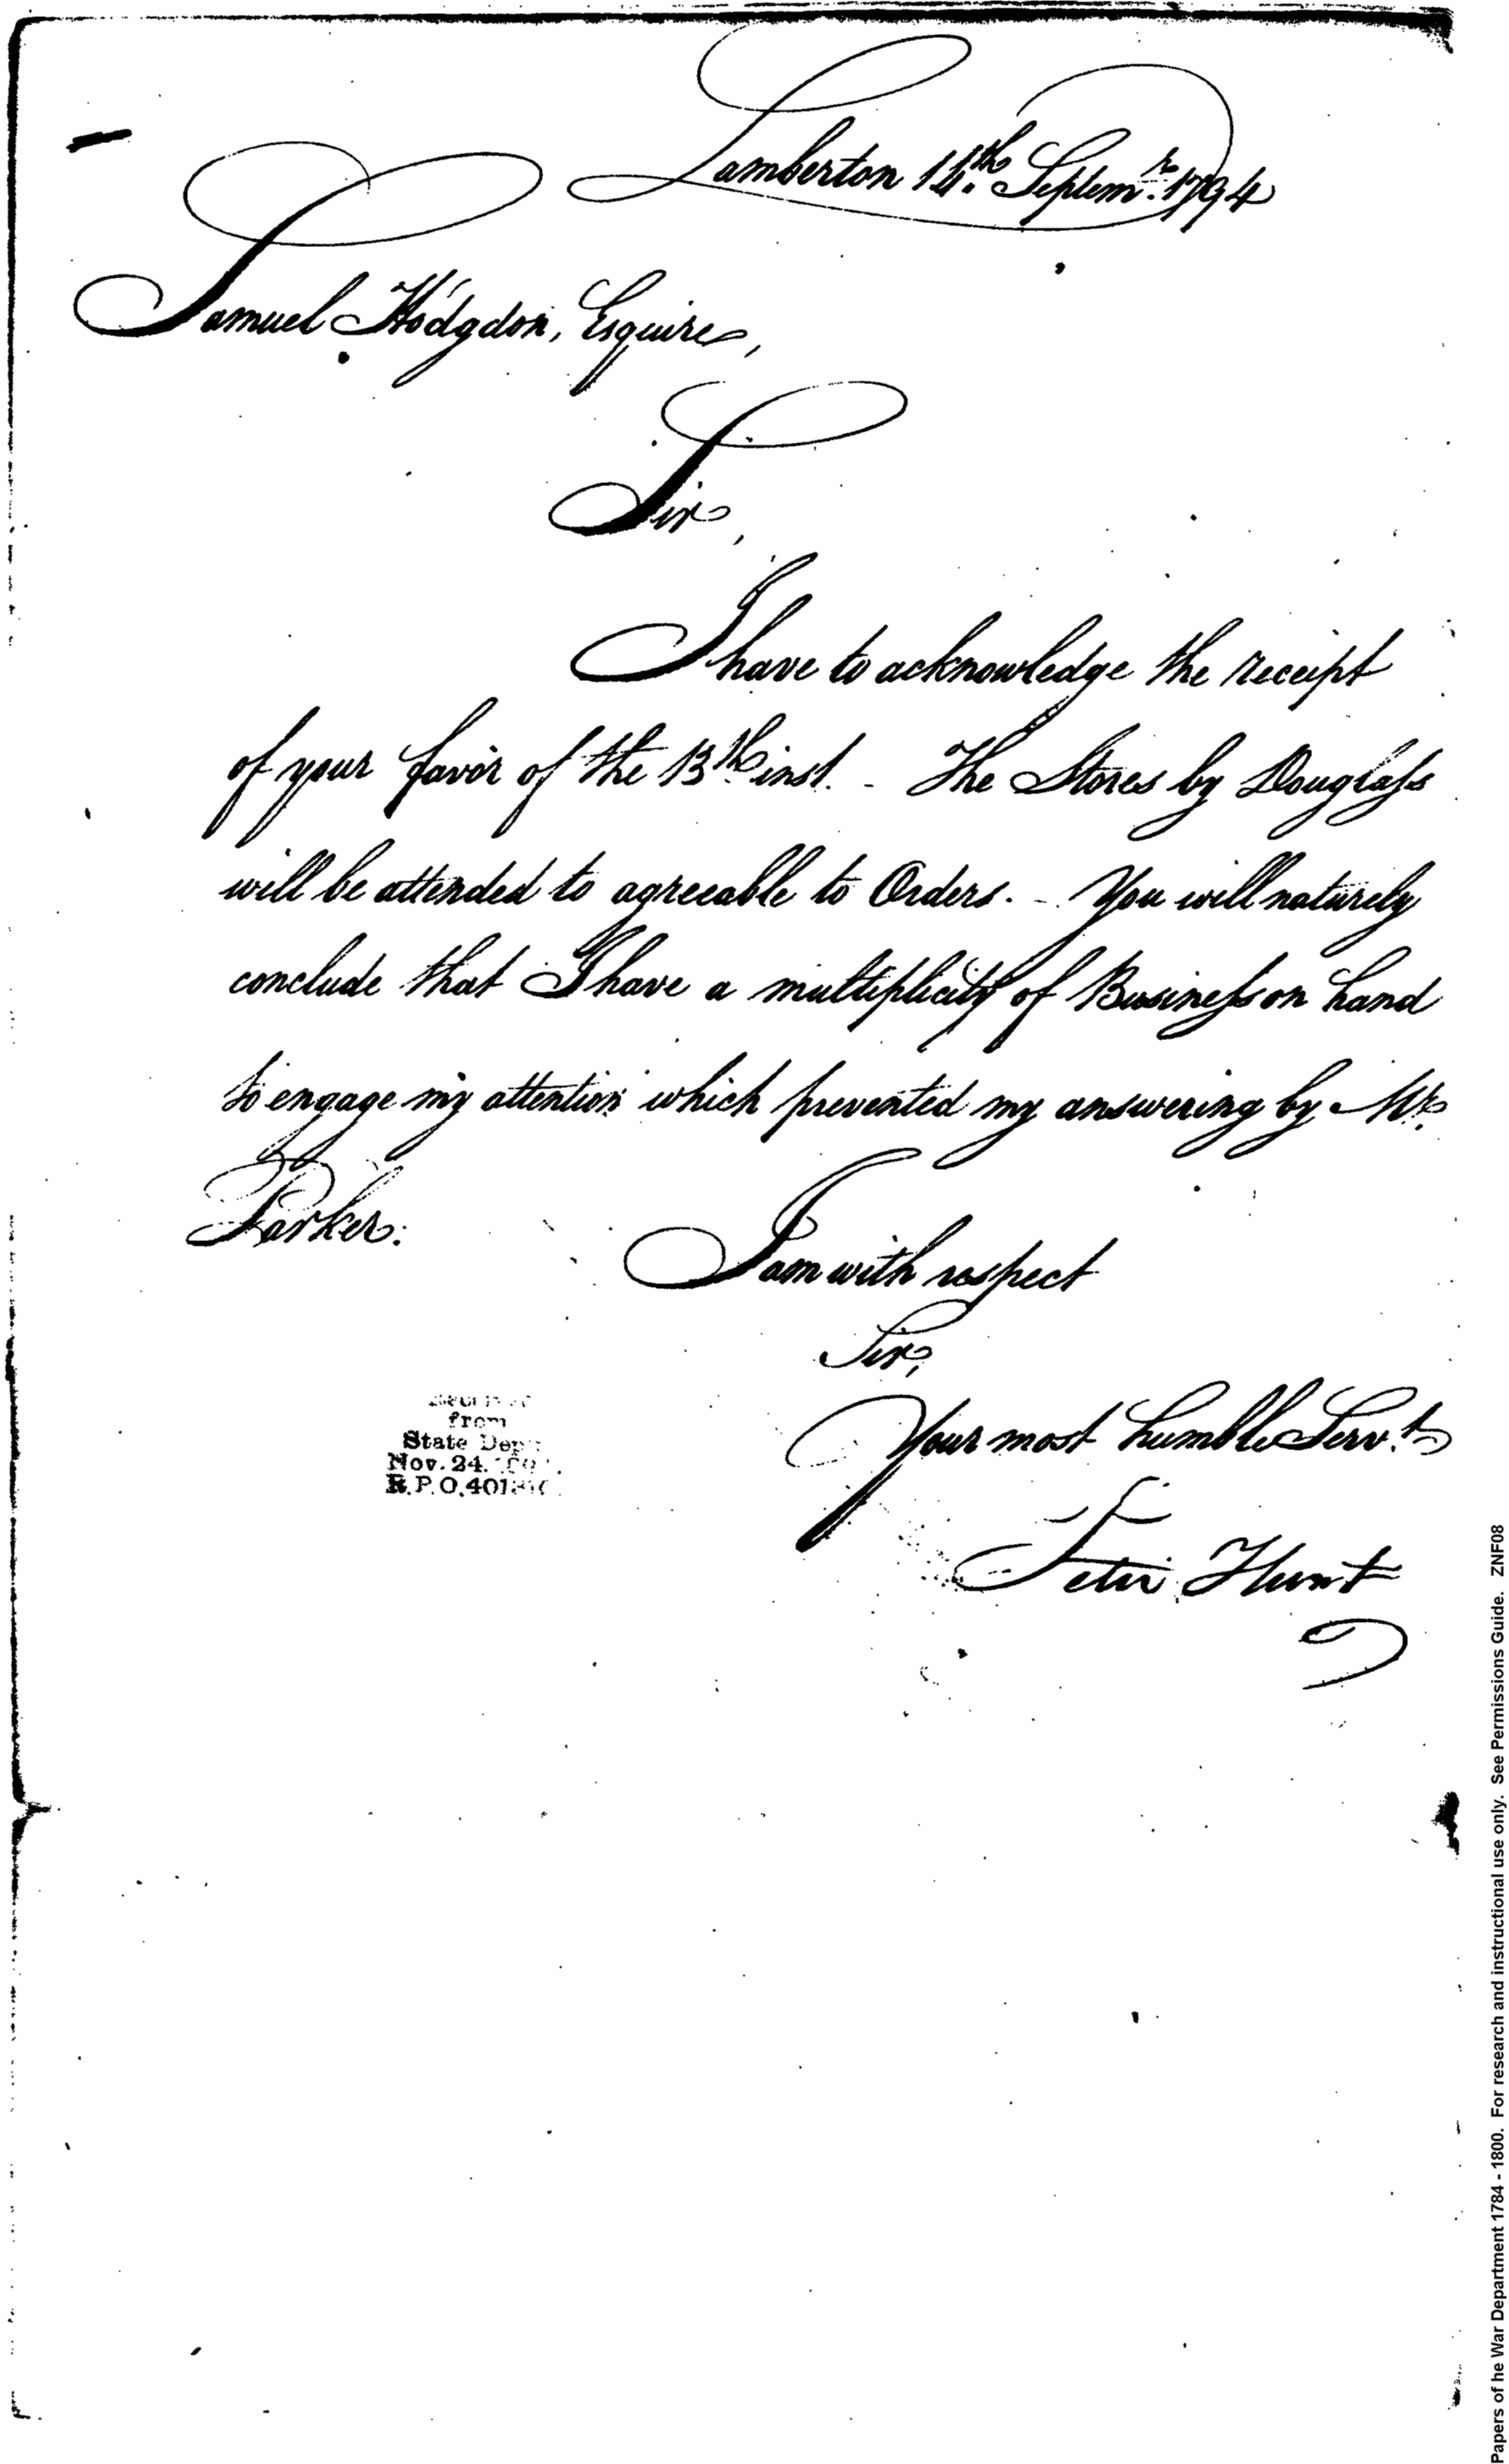 Lamberton 14.th Septemr. 1794
Samuel Hodgdon, Esquire,
Sir,
I have to acknowledge the receipt
of your favor of the 13th inst. - The Stores by Douglass
will be attended to agreeable to Orders. - You will naturely
conclude that I have a multiplicity of Business on hand
to engage my attention which prevented my answering by Mr.
Parker.
I am with respect
Sir,
Your most humble Serv.t
Peter Hunt
from
State Dept.
Nov. 24.
R.P.O.
Papers of he War Department 1784 - 1800. For research and instructional use only. See Permissions Guide. ZNF08